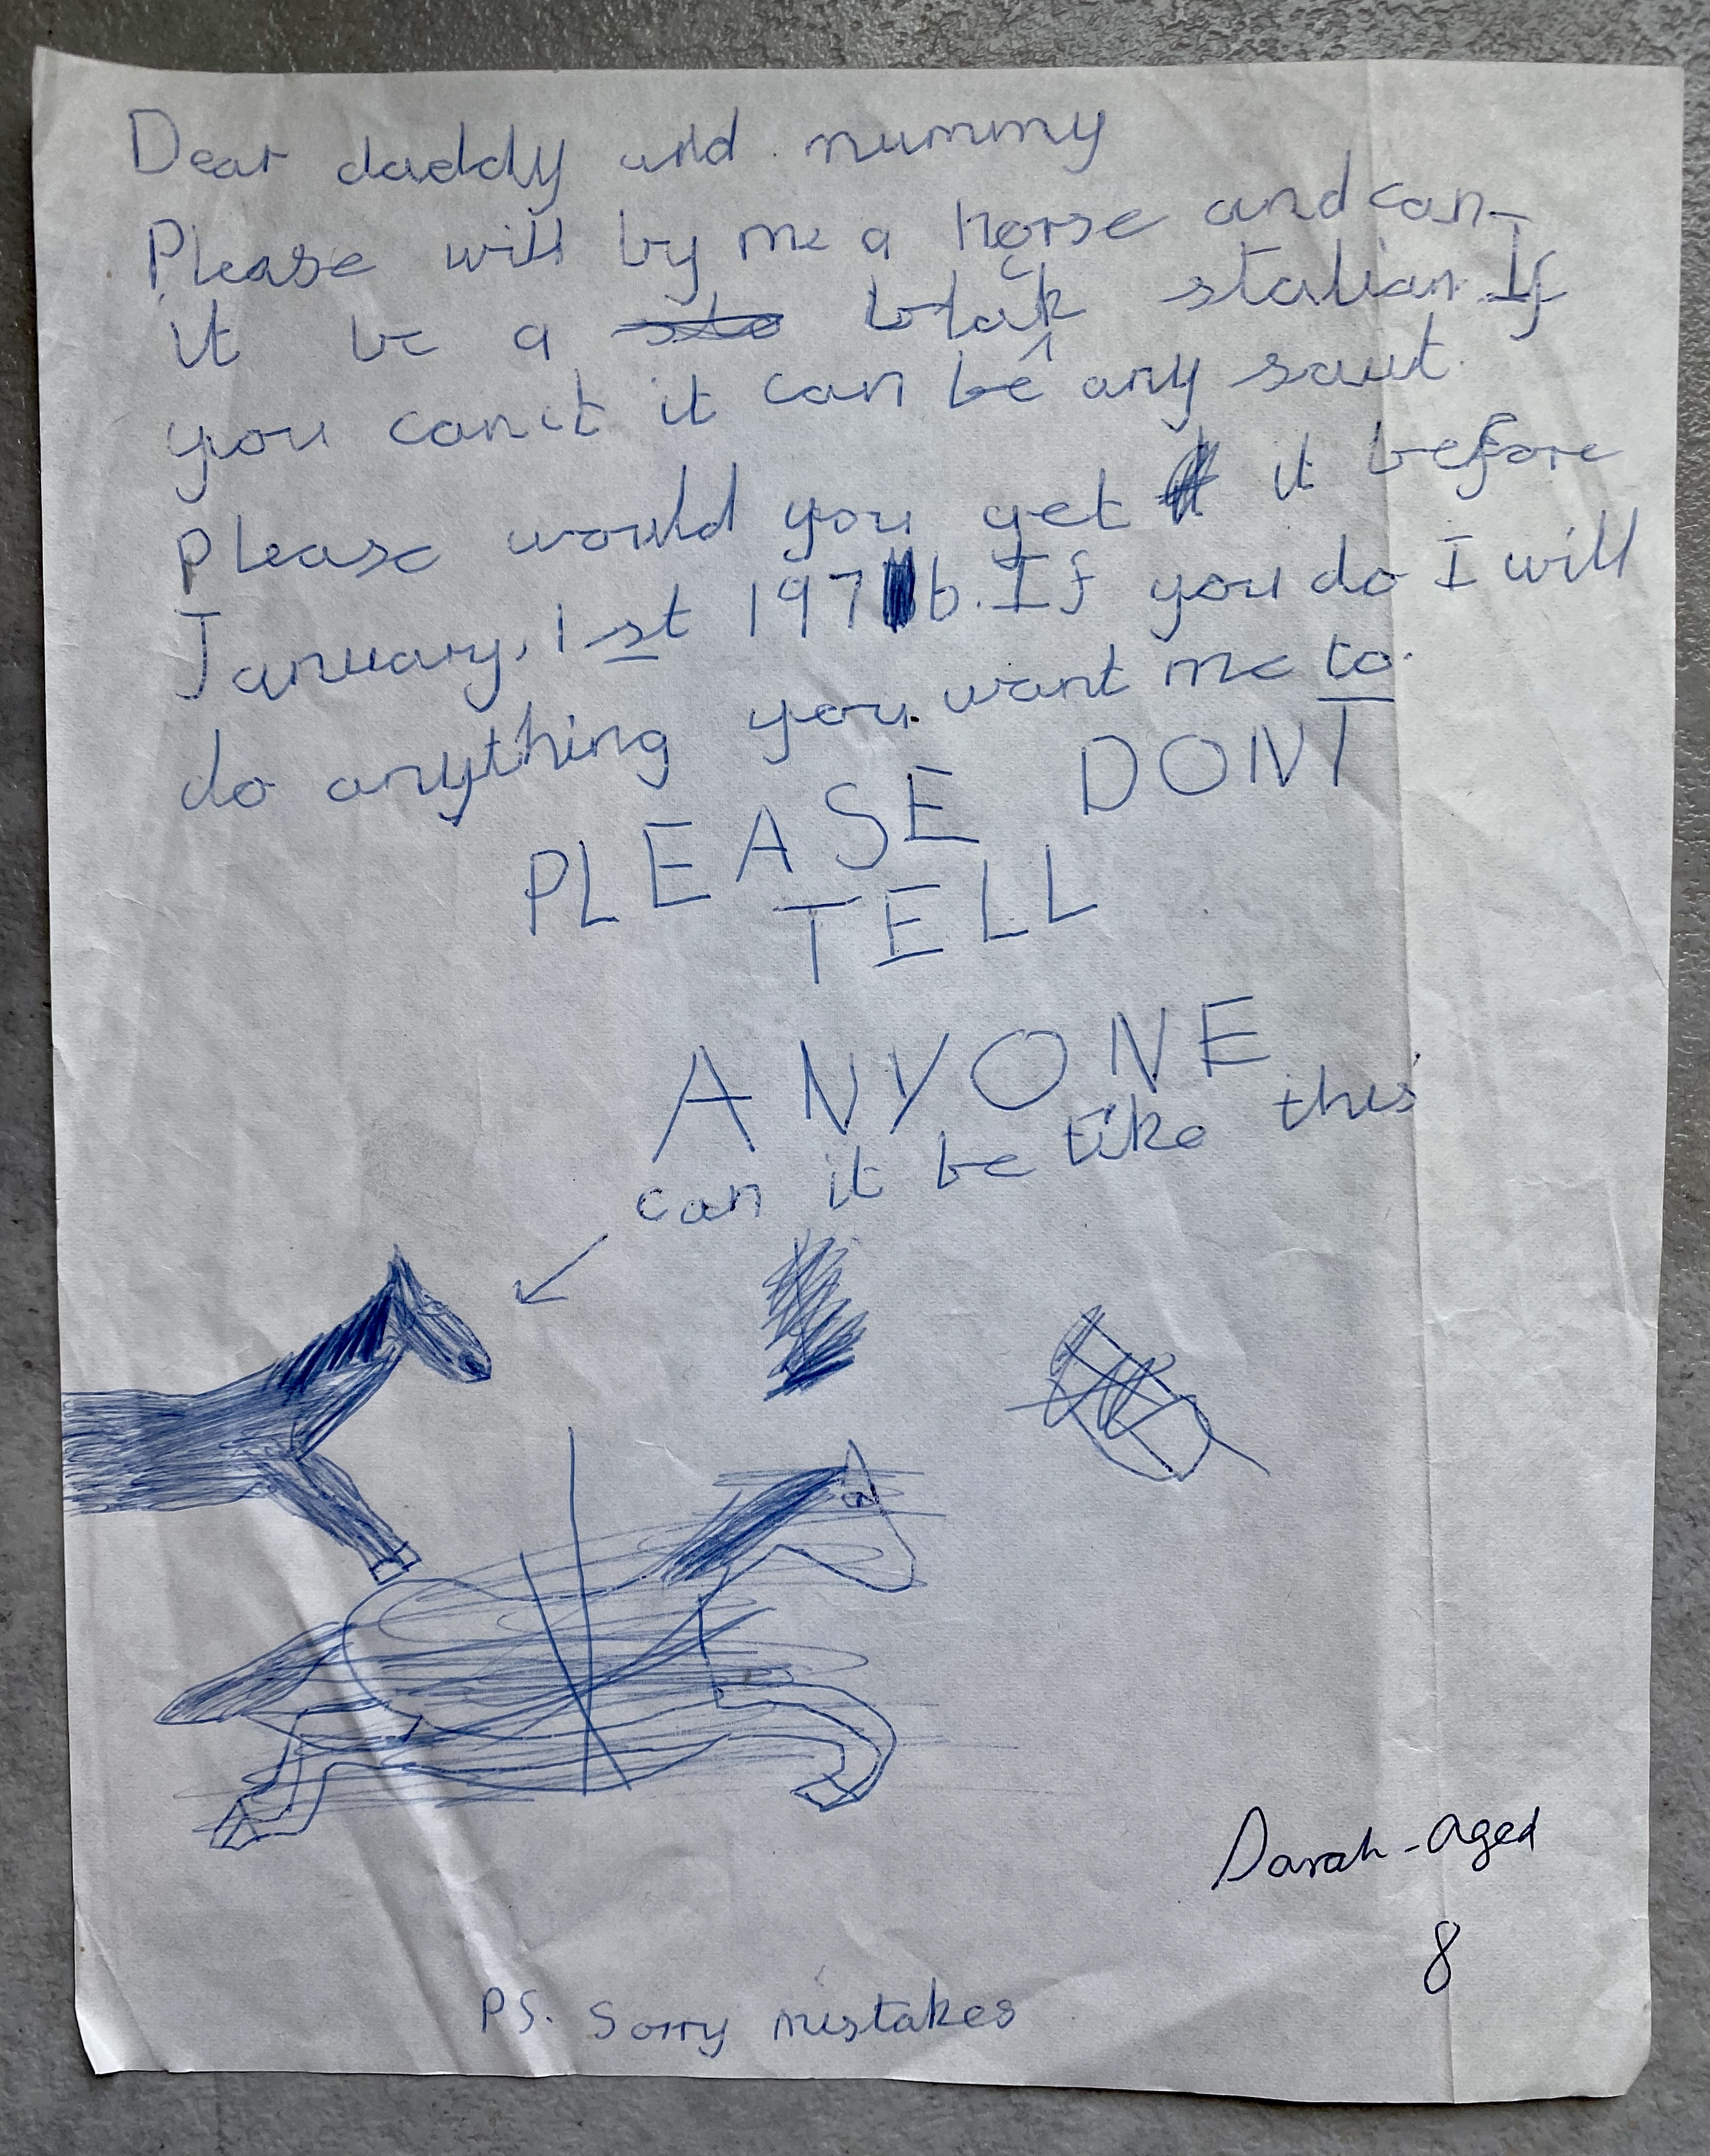 Dear daddy and mummy
Please will by me a horse and can
it be a blak stalian. If
you can't it can be any saut.
Please would you get it before
January, 1st 1976. If you do I will
do anything you want me to.
PLEASE DONT
TELL
ANYONE
can it be like this
Sarah - aged
8
PS. Sorry mistakes